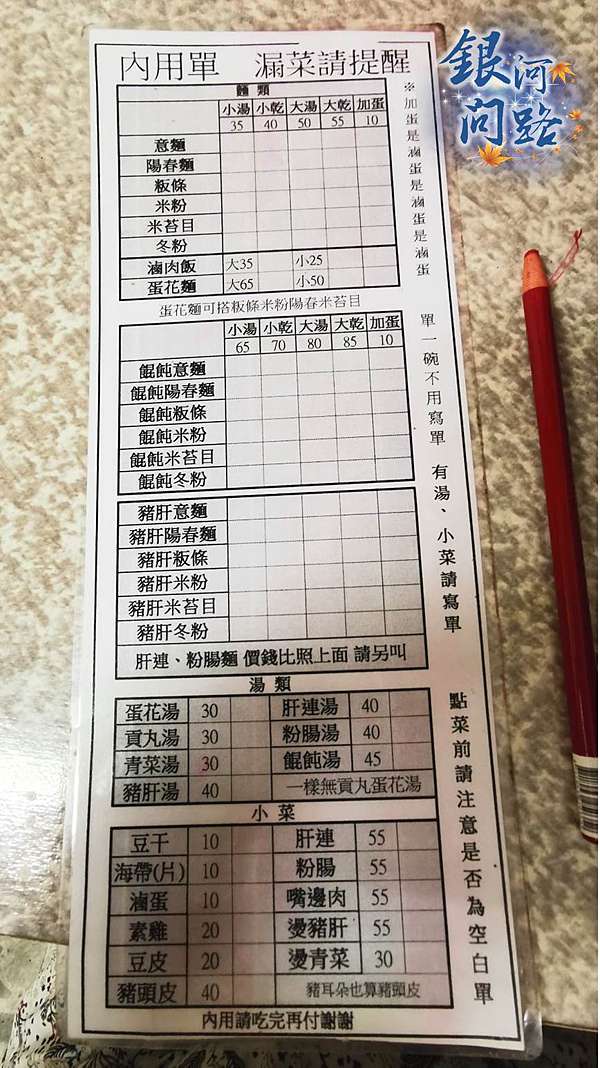 銀河
問路
內用單 漏菜請提醒
麵類
小湯 小乾 大湯 大乾 加蛋
35 40 50 55 10
意麵
陽春麵
粄條
米粉
米苔目
冬粉
滷肉飯 大35 小25
蛋花麵 大65 小50
蛋花麵可搭粄條米粉陽春米苔目
小湯 小乾 大湯 大乾 加蛋
65 70 80 85 10
餛飩意麵
餛飩陽春麵
餛飩粄條
餛飩米粉
餛飩米苔目
餛飩冬粉
豬肝意麵
豬肝陽春麵
豬肝粄條
豬肝米粉
豬肝米苔目
豬肝冬粉
肝連、粉腸麵 價錢比照上面 請另叫
湯類
蛋花湯 30 肝連湯 40
貢丸湯 30 粉腸湯 40
青菜湯 30 餛飩湯 45
豬肝湯 40 一樣無貢丸蛋花湯
小菜
豆干 10 肝連 55
海帶(片) 10 粉腸 55
滷蛋 10 嘴邊肉 55
素雞 20 燙豬肝 55
豆皮 20 燙青菜 30
豬頭皮 40 豬耳朵也算豬頭皮
內用請吃完再付謝謝
※加蛋是滷蛋是滷蛋是滷蛋
單一碗不用寫單 有湯、小菜請寫單
點菜前請注意是否為空白單